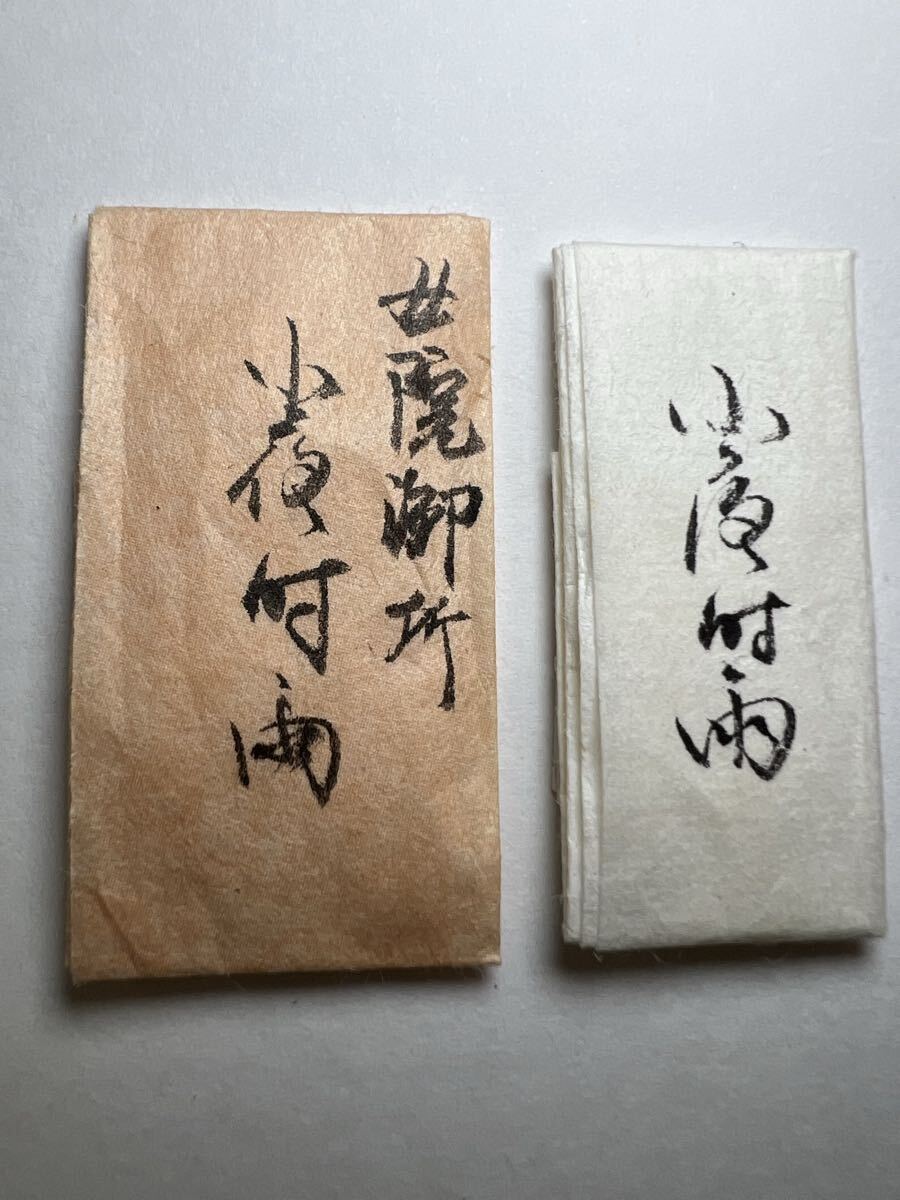 女院御所
小夜时雨
小夜时雨